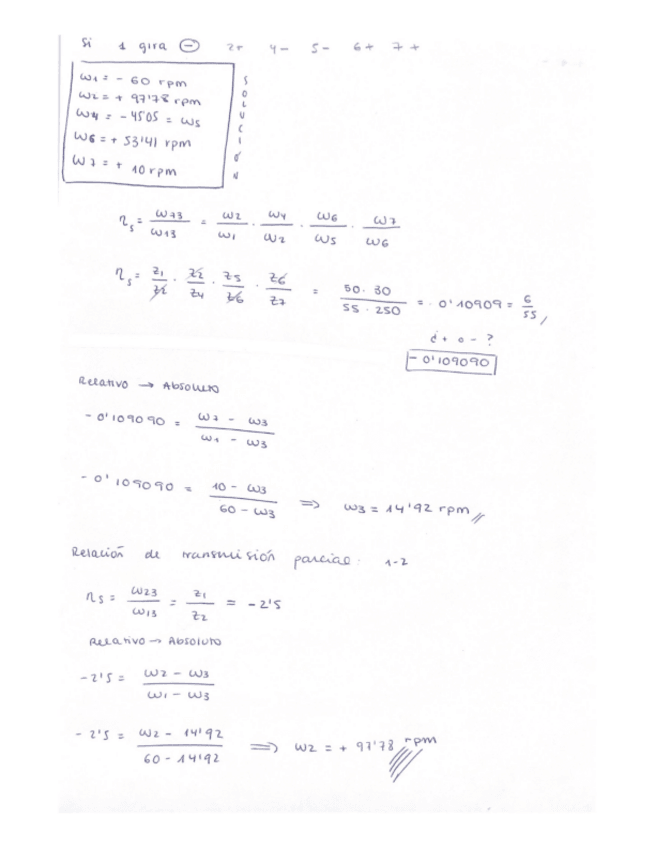 Si 1 gira ⊖ 2+ 4- 5- 6+ 7+
ω1 = - 60 rpm
ω2 = + 97'78 rpm
ω4 = - 45'05 = ω5
ω6 = + 53'41 rpm
ω7 = + 10 rpm
SOLUCIÓN
ηs = ω73/ω13 = ω2/ω1 · ω4/ω2 · ω6/ω5 · ω7/ω6
ηs = z1/z2 · z2/z4 · z5/z6 · z6/z7 = 50·30/55·250 = 0'10909 = 6/55
¿+ o - ?
- 0'109090
Relativo → Absoluto
- 0'109090 = ω7 - ω3/ω1 - ω3
- 0'109090 = 10 - ω3/60 - ω3 ⇒ ω3 = 14'92 rpm
Relación de transmisión parcial: 1-2
ηs = ω23/ω13 = z1/z2 = -2'5
Relativo → Absoluto
-2'5 = ω2 - ω3/ω1 - ω3
-2'5 = ω2 - 14'92/60 - 14'92 ⇒ ω2 = + 97'78 rpm